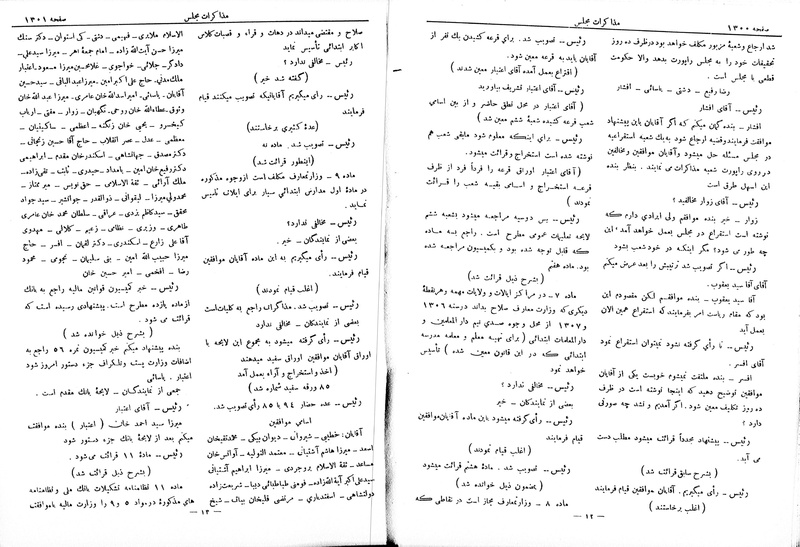 صفحه ۱۳۰۰
مذاکرات مجلس
شد ارجاع وشعبهٔ مزبور مکلف خواهد بود درظرف ده روز
تحقیقات خود را به مجلس راپورت بدهد والا حکومت
قطعی با مجلس است .
رضا رفیع - دشتی - یاسائی - افشار
رئیس - آقای افشار
افشار - بنده گمان میکنم که اگر آقایان باین پیشنهاد
موافقت فرمایند وقضیه ارجاع شود به یک شعبه استقراعیه
در مجلس مسئله حل میشود وآقایان موافقین ومخالفین
در روی راپورت شعبه مذاکرات می نمایند . بنظر بنده
این اسهل طرق است
رئیس - آقای زوار مخالفید ؟
زوار - خیر بنده موافقم ولی ایرادی دارم که
نوشته است استقراع در مجلس بعمل خواهد آمد ، این
چه طور می شود؟ مگر اینکه در خود شعب بشود
رئیس - اگر تصویب شد ترتیبش را بعد عرض میکنم
آقای آقا سید یعقوب .
آقا سید یعقوب - بنده موافقم لکن مقصودم این
بود که مقام ریاست امر بفرمایند که استقراع همین الان
بعمل آید
رئیس - تا رأی گرفته نشود نمیتوان استقراع نمود
آقای افسر .
افسر - بنده ملتفت نمیشوم خوبست یکی از آقایان
موافقین توضیح بدهید که اینجا نوشته است در ظرف
ده روز تکلیف معین شود . اگر آمدیم و نشد چه صورتی
پیدا
رئیس - پیشنهاد مجدداً قرائت میشود مطلب دست
می آید .
( بشرح سابق قرائت شد )
رئیس - رأی میگیریم . آقایان موافقین قیام فرمایند
( اغلب برخاستند )
رئیس - تصویب شد . برای قرعه کشیدن یک نفر از
آقایان باید به قرعه معین شود .
( اقتراع بعمل آمده آقای اعتبار معین شدند )
رئیس - آقای اعتبار تشریف بیاورید
( آقای اعتبار در محل نطق حاضر و از بین اسامی
شعب قرعه کشیده شعبهٔ ششم معین شد )
رئیس - برای اینکه معلوم شود مابقی شعب هم
نوشته شده است استخراج وقرائت میشود.
( آقای اعتبار اوراق قرعه را فرداً فرد از ظرف
قرعه استخراج و اسامی بقیه شعب را قرائت
نمودند )
رئیس - پس دوسیه مراجعه میشود بشعبه ششم
لایحه تعلیمات عمومی مطرح است . راجع بسه ماده
که قابل توجه شده بود و بکمیسیون مراجعه شده
بود . ماده هفتم
( بشرح ذیل قرائت شد )
ماده ۷ - در مراکز ایالات و ولایات مهمه وهرنقطهٔ
دیگری که وزارت معارف صلاح بداند درسنه ۱۳۰۶
و ۱۳۰۷ از محل وجوه صدی نیم دار المعلمین و
دارالمعلمات ابتدائی ( برای تهیه معلم و معلمه مدرسه
ابتدائی که در این قانون معین شده ) تأسیس
خواهد نمود
رئیس - مخالفی ندارد ؟
بعضی از نمایندگان - خیر
رئیس - رأی گرفته میشود باین ماده آقایان موافقین
قیام فرمایند
( اغلب قیام نمودند )
رئیس - تصویب شد . مادهٔ هشتم قرائت میشود
( بمضمون ذیل خوانده شد )
ماده ۸ - وزارت معارف مجاز است در نقاطی که
- ۱۲ -
مذاکرات مجلس
صفحه ۱۳۰۱
صلاح و مقتضی میداند در دهات و قراء و قصبات کلاس
اکابر ابتدائی تأسیس نماید
رئیس - مخالفی ندارد ؟
( گفته شد خیر )
رئیس - رأی میگیریم آقایانیکه تصویب میکنند قیام
فرمایند
(عدهٔ کثیری برخاستند)
رئیس - تصویب شد. ماده نه
(اینطور قرائت شد)
ماده ۹ - وزارت معارف مکلف است ازوجوه مذکوره
در مادهٔ اول مدارس ابتدائی سیار برای ایلات تأسیس
نماید .
رئیس - مخالفی ندارد؟
بعضی از نمایندگان - خیر .
رئیس - رأی میگیریم به این ماده آقایان موافقین
قیام فرمایند.
( اغلب قیام نمودند )
رئیس - تصویب شد. مذاکرات راجع به کلیات است
بعضی از نمایندگان - مخالفی ندارد
رئیس - رأی گرفته میشود به مجموع این لایحه با
اوراق آقایان موافقین اوراق سفید میدهند
( اخذ واستخراج و آراء بعمل آمد
۸۵ ورقه سفید شماره شد )
رئیس - عده حضار ۹۴ با ۸۵ رأی تصویب شد .
اسامی موافقین
آقایان: خطیبی - شیروانی - دیوان بیگی - محمدتقیخان
اسعد - میرزا هاشم آشتیانی - معتمد التولیه - آوانس خان
مساعد - ثقة الاسلام بروجردی - میرزا ابراهیم آشتیانی
سیدعلی اکبر آیة اللّه زاده - فومنی طباطبائی دیبا - شریعت زاده
دولتشاهی - اسفندیاری - مرتضی قلیخان بیات - شیخ
الاسلام ملایری - فهیمی - دشتی - کی استوان - دکتر سنک
میرزا حسن آیت اللّه زاده - امام جمعهٔ اهر - میرزا سیدعلی -
دادگر - جلائی - خواجوی - غلامحسین میرزا مسعود - اعتبار
ملک مدنی - حاج علی اکبر امین - میرزا عبدالباقی - سید حسین
آقایان - یاسائی - امیر اسداللّه خان عامری - میرزا عبداللّه خان
وثوق - عطاءاللّه خان روحی - نگهبان - زوار - مفتی - ارباب
کیخسرو - یحیی خان زنگنه - اعظمی - ساکینیان -
معظمی - عدل - عصر انقلاب - حاج آقا حسین زنجانی -
دکتر مصدق - جهانشاهی - اسکندرخان مقدم - ابراهیمی
دکتر رفیع خان امین - بامداد - حیدری - نائب - تقی زاده -
ملک آرائی - ثقة الاسلامی - حق نویس - میر ممتاز -
محمدولی میرزا - لیقوانی - ذوالقدر - جوانشیر - سید جواد
محققی - سیدکاظم یزدی - عراقی - سلطان محمد خان عامری
طاهری - وزیری - نظامی - زعیم - کلالی - مهدوی
آقا علی زارع - اسکندری - دکتر لقمان - افسر - حاج
میرزا حبیب اللّه امین - بنی سلیمان - نجومی - محمود
رضا - افخمی - امیر حسین خان
رئیس - خبر کمیسیون قوانین مالیه راجع به بانک
ازماده یازده مطرح است. پیشنهادی رسیده است که
قرائت می شود .
( بشرح ذیل خوانده شد )
بنده پیشنهاد میکنم خبر کمیسیون نمره ۵۶ راجع به
اضافات وزارت پست وتلگراف جزء دستور امروز شود
اعتبار . یاسائی
جمعی از نمایندگان - لایحهٔ بانک مقدم است .
رئیس - آقای اعتبار
میرزا سید احمد خان ( اعتبار ) بنده موافقت
میکنم بعد از لایحهٔ بانک جزء دستور شود
رئیس - ماده ۱۱ قرائت می شود .
( بشرح ذیل قرائت شد )
ماده ۱۱ نظامنامه تشکیلات بانک ملی و نظامنامه
های مذکوره درمواد ۵ و ۹ را وزارت مالیه باموافقت
- ۱۳ -